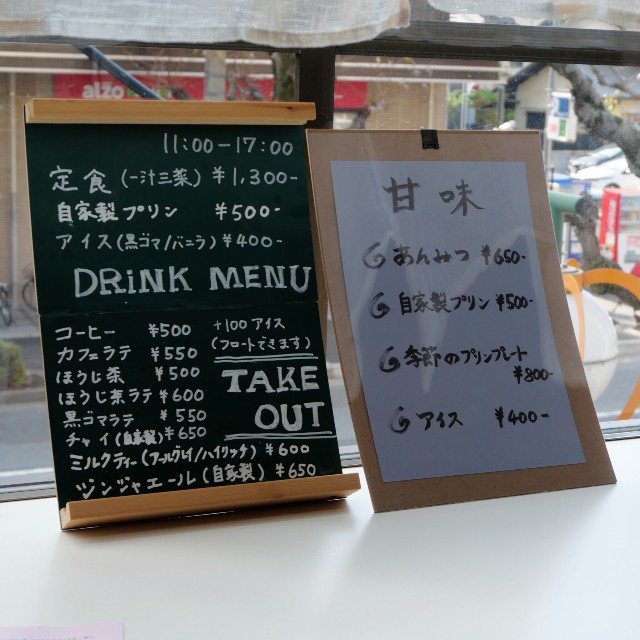 alzo
11:00-17:00
定食(一汁三菜) ¥1,300-
自家製プリン ¥500-
アイス(黒ゴマ/バニラ) ¥400-
DRiNK MENU
コーヒー ¥500
カフェラテ ¥550
ほうじ茶 ¥500
ほうじ茶ラテ ¥600
黒ゴマラテ ¥550
チャイ(自家製) ¥650
ミルクティー(アールグレイ/ハイクラッチ) ¥600
ジンジャエール(自家製) ¥650
+100 アイス
(フロートできます)
TAKE
OUT
甘味
あんみつ ¥650-
自家製プリン ¥500-
季節のプリンプレート
¥800-
アイス ¥400-